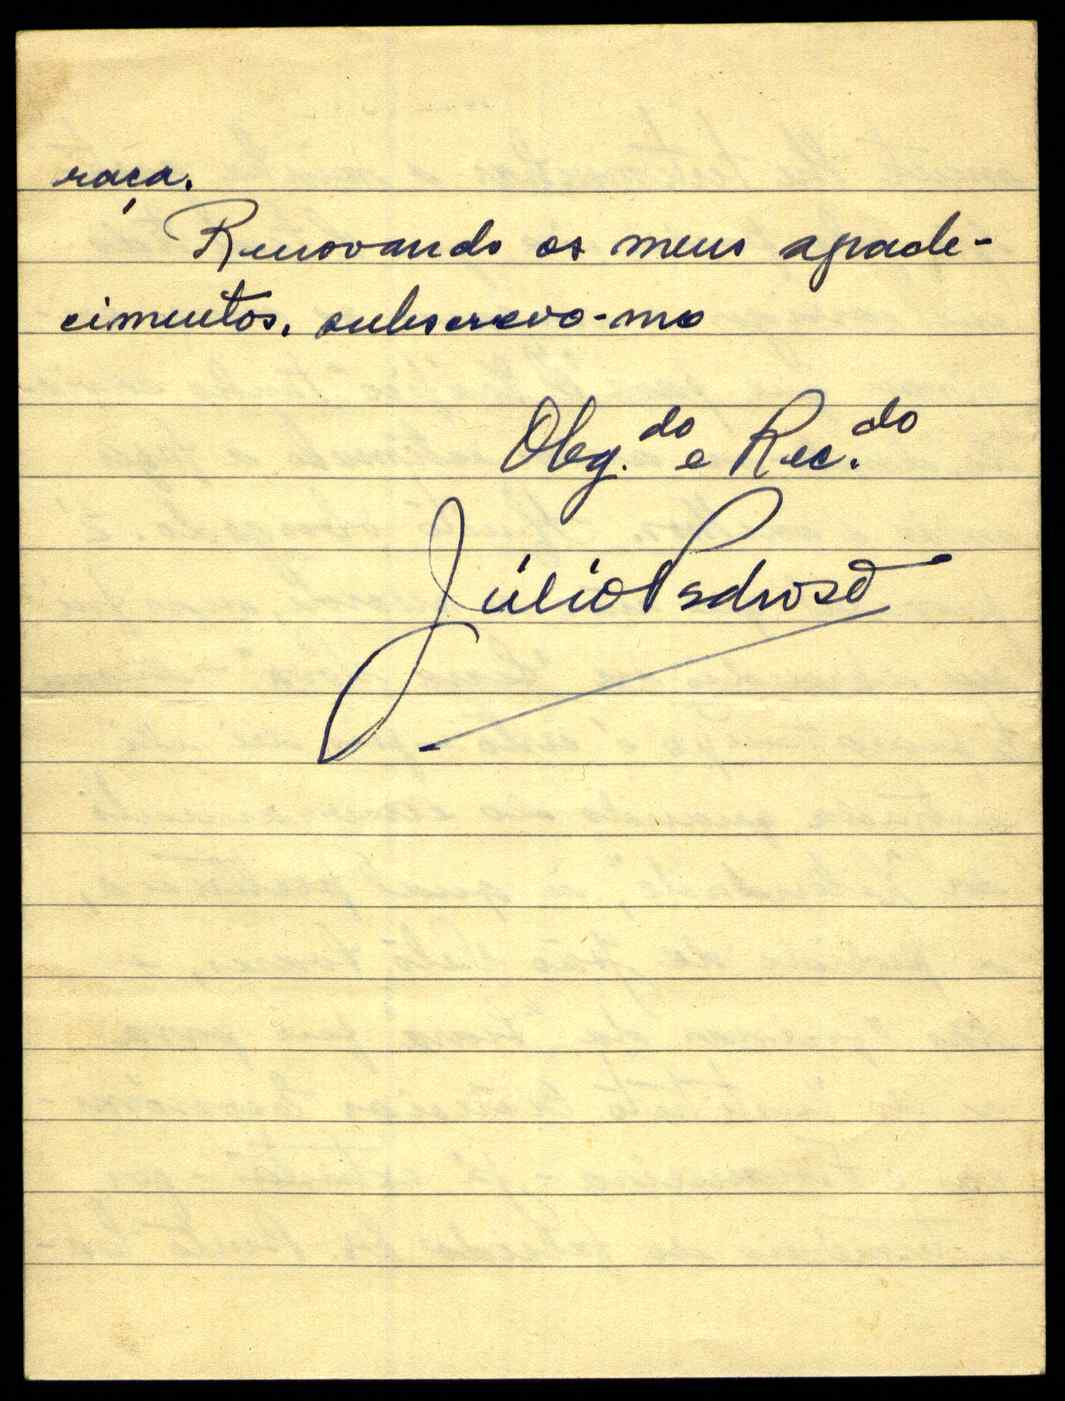 raça.
Renovando os meus agrade-
cimentos, subscrevo-me
Obg.do e Rec.do
Júlio Pedrosa